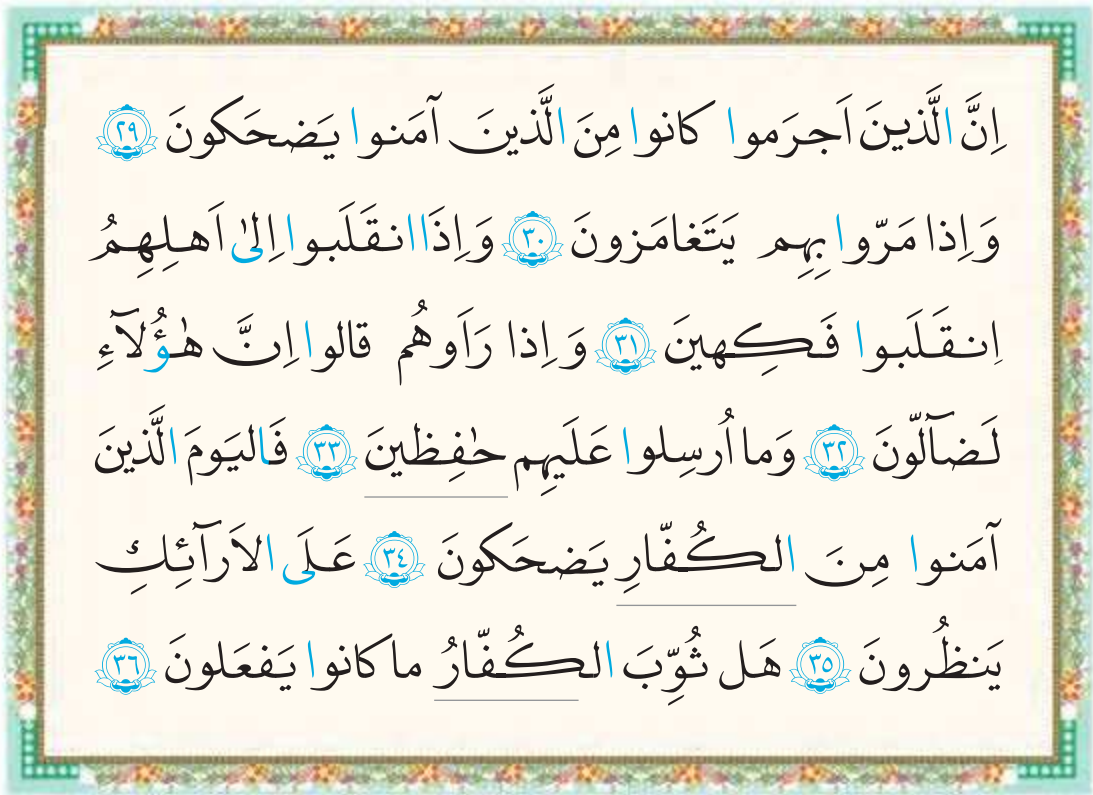 اِنَّ الَّذينَ اَجرَموا كانوا مِنَ الَّذينَ آمَنوا يَضحَكونَ ٢٩
وَ اِذا مَرّوا بِهِم يَتَغامَزونَ ٣٠ وَ اِذَا انقَلَبوا اِلىٰ اَهلِهِمُ
اِنقَلَبوا فَكِهينَ ٣١ وَ اِذا رَاَوهُم قالوا اِنَّ هٰؤُلآءِ
لَضآلّونَ ٣٢ وَ ما اُرسِلوا عَلَيهِم حٰفِظينَ ٣٣ فَاليَومَ الَّذينَ
آمَنوا مِنَ الكُفّارِ يَضحَكونَ ٣٤ عَلَى الاَرآئِكِ
يَنظُرونَ ٣٥ هَل ثُوِّبَ الكُفّارُ ما كانوا يَفعَلونَ ٣٦